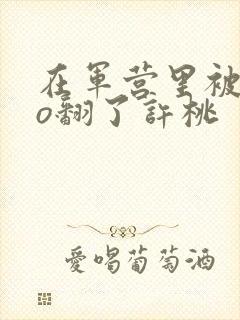 在軍营里被
o翻了許桃
愛喝葡萄酒